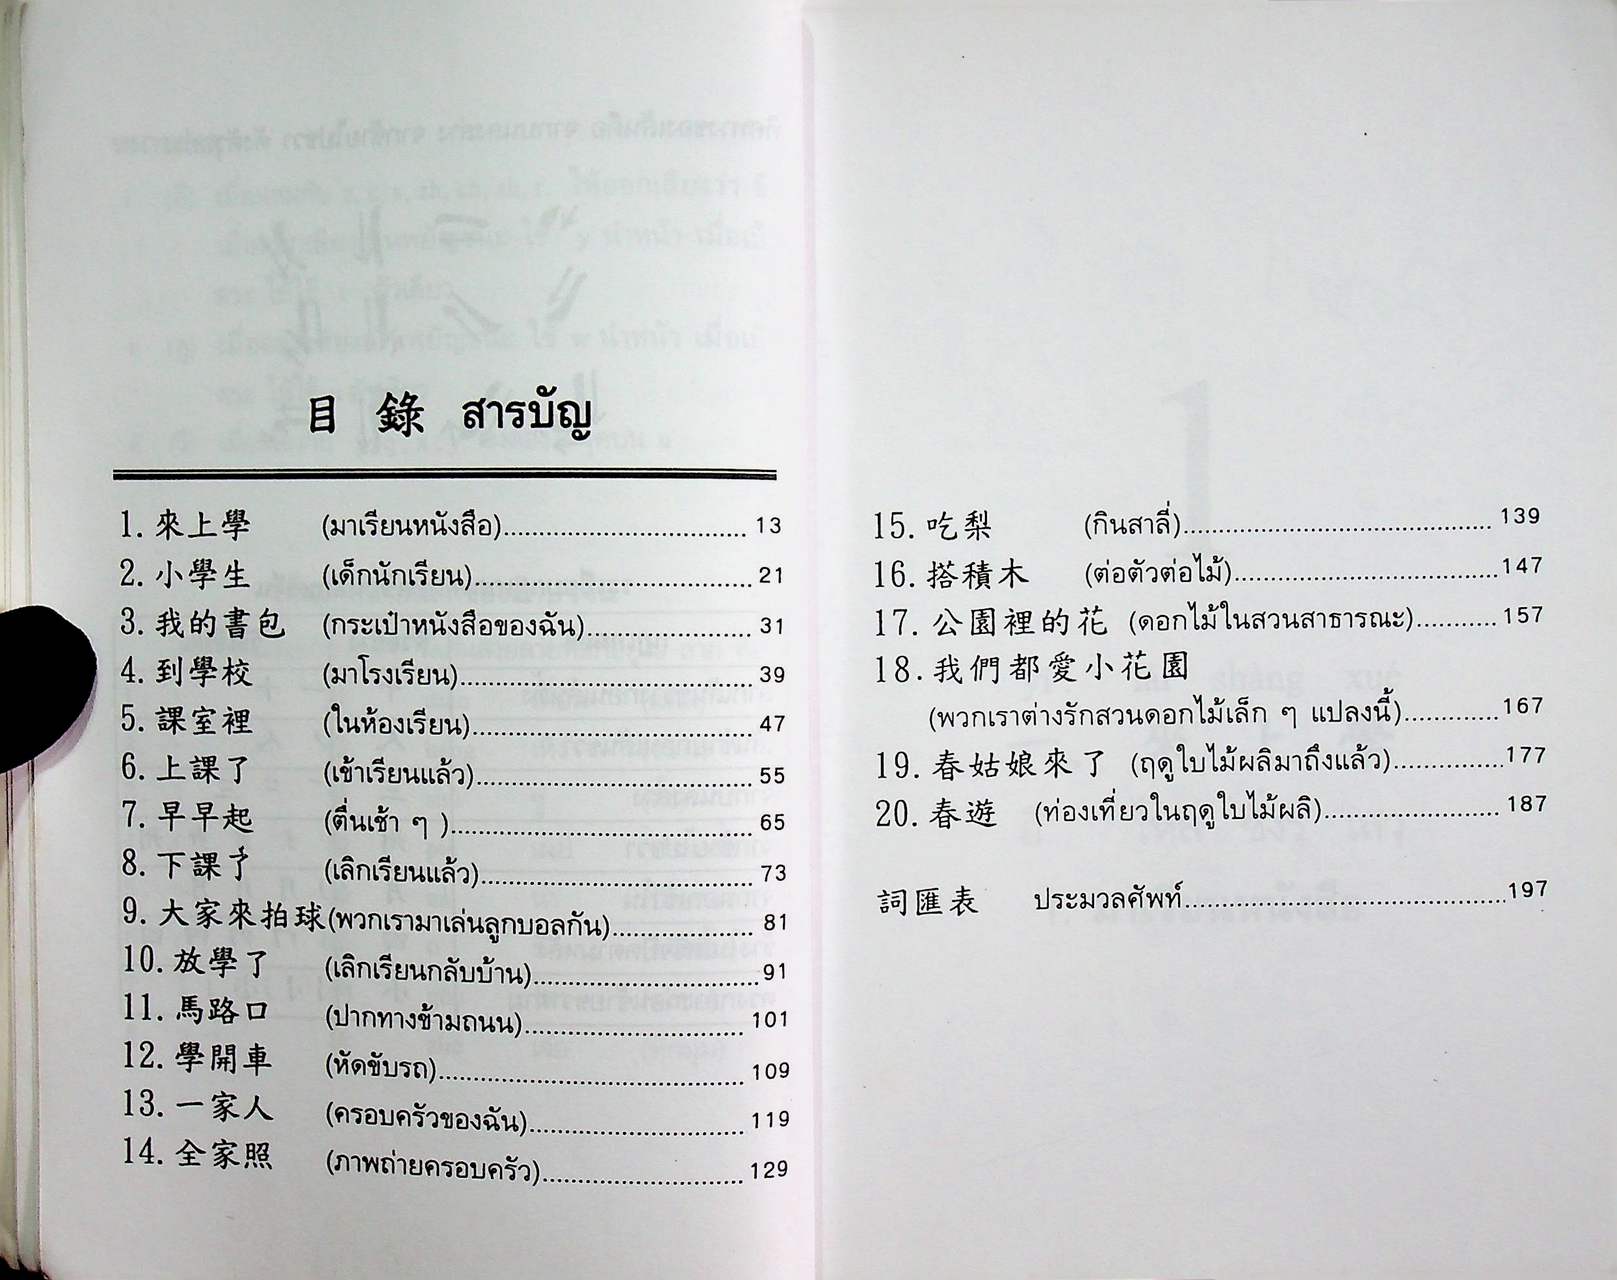 目 錄 สารบัญ
1. 來上學 (มาเรียนหนังสือ)................................ 13
2. 小學生 (เด็กนักเรียน).................................... 21
3. 我的書包 (กระเป๋าหนังสือของฉัน)...................... 31
4. 到學校 (มาโรงเรียน)...................................... 39
5. 課室裡 (ในห้องเรียน)..................................... 47
6. 上課了 (เข้าเรียนแล้ว).................................... 55
7. 早早起 (ตื่นเช้า ๆ )........................................ 65
8. 下課了 (เลิกเรียนแล้ว).................................... 73
9. 大家來拍球(พวกเรามาเล่นลูกบอลกัน)................... 81
10. 放學了 (เลิกเรียนกลับบ้าน)..............................91
11. 馬路口 (ปากทางข้ามถนน)............................. 101
12. 學開車 (หัดขับรถ)........................................ 109
13. 一家人 (ครอบครัวของฉัน)............................. 119
14. 全家照 (ภาพถ่ายครอบครัว)........................... 129
15. 吃梨 (กินสาลี่)......................................... 139
16. 搭積木 (ต่อตัวต่อไม้)...................................147
17. 公園裡的花 (ดอกไม้ในสวนสาธารณะ)...........157
18. 我們都愛小花園
(พวกเราต่างรักสวนดอกไม้เล็ก ๆ แปลงนี้).............167
19. 春姑娘來了 (ฤดูใบไม้ผลิมาถึงแล้ว)...............177
20. 春遊 (ท่องเที่ยวในฤดูใบไม้ผลิ)........................ 187
詞匯表 ประมวลศัพท์...........................................197